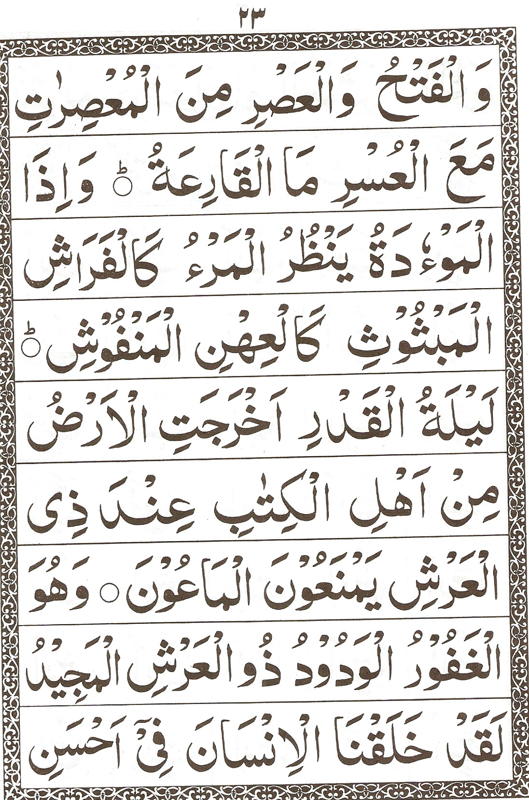 ٢٣
وَالْفَتْحُ وَالْعَصْرِ مِنَ الْمُعْصِرٰتِ
مَعَ الْعُسْرِ مَا الْقَارِعَةُ ○ؕ وَاِذَا
الْمَوْءٗدَةُ يَنْظُرُ الْمَرْءُ كَالْفَرَاشِ
الْمَبْثُوْثِ كَالْعِهْنِ الْمَنْفُوْشِ ○ؕ
لَيْلَةُ الْقَدْرِ اَخْرَجَتِ الْاَرْضُ
مِنْ اَهْلِ الْكِتٰبِ عِنْدَ ذِى
الْعَرْشِ يَمْنَعُوْنَ الْمَاعُوْنَ ○ وَهُوَ
الْغَفُوْرُ الْوَدُوْدُ ذُو الْعَرْشِ الْمَجِيْدُ
لَقَدْ خَلَقْنَا الْاِنْسَانَ فِىْٓ اَحْسَنِ